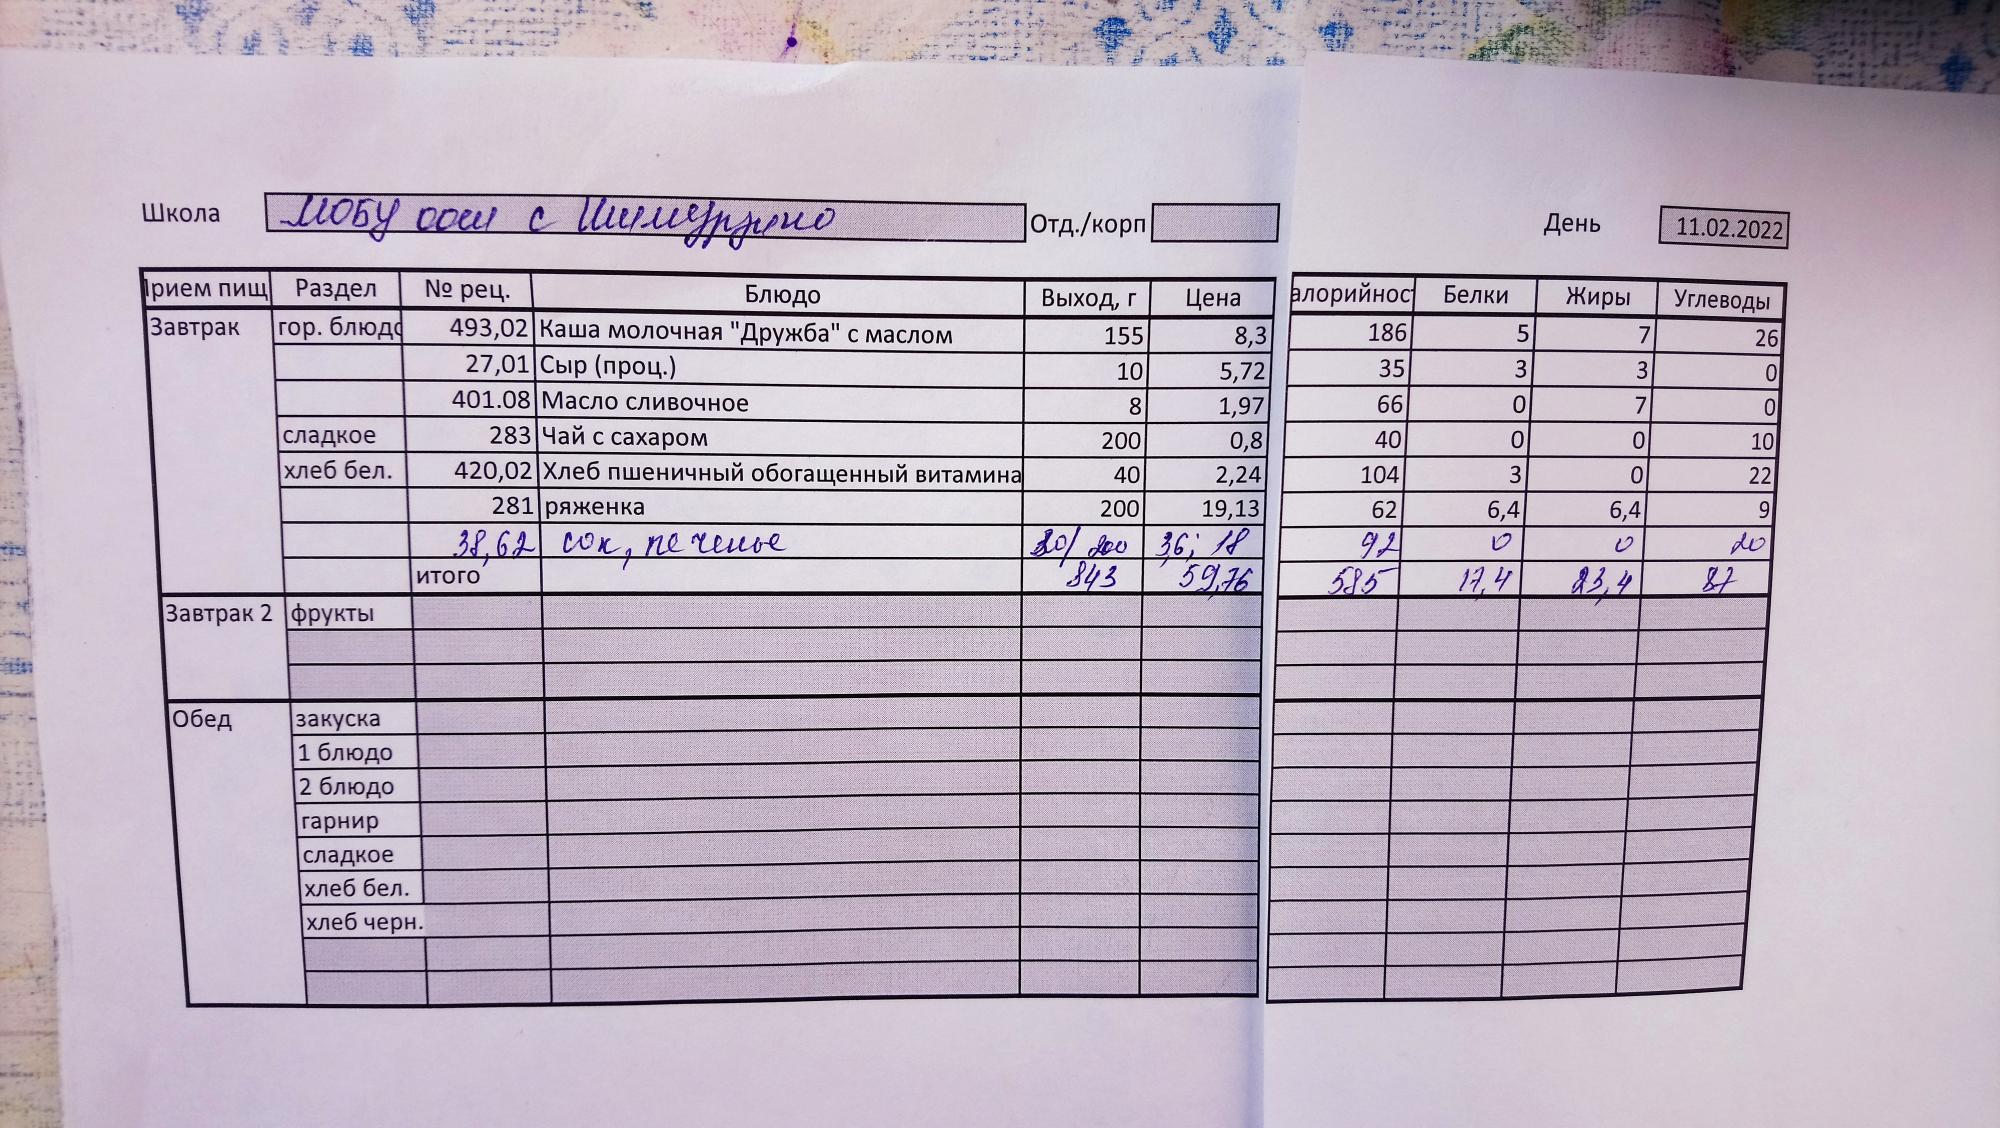 Школа МОБУ оош с Шимурзино Отд./корп День 11.02.2022
Прием пищ Раздел № рец. Блюдо Выход, г Цена алорийнос Белки Жиры Углеводы
Завтрак гор. блюдо 493,02 Каша молочная "Дружба" с маслом 155 8,3 186 5 7 26
27,01 Сыр (проц.) 10 5,72 35 3 3 0
401.08 Масло сливочное 8 1,97 66 0 7 0
сладкое 283 Чай с сахаром 200 0,8 40 0 0 10
хлеб бел. 420,02 Хлеб пшеничный обогащенный витамина 40 2,24 104 3 0 22
281 ряженка 200 19,13 62 6,4 6,4 9
38,62 сок, печенье 200 3,6; 18 92 0 0 20
итого 843 59,76 585 17,4 23,4 87
Завтрак 2 фрукты
Обед закуска
1 блюдо
2 блюдо
гарнир
сладкое
хлеб бел.
хлеб черн.